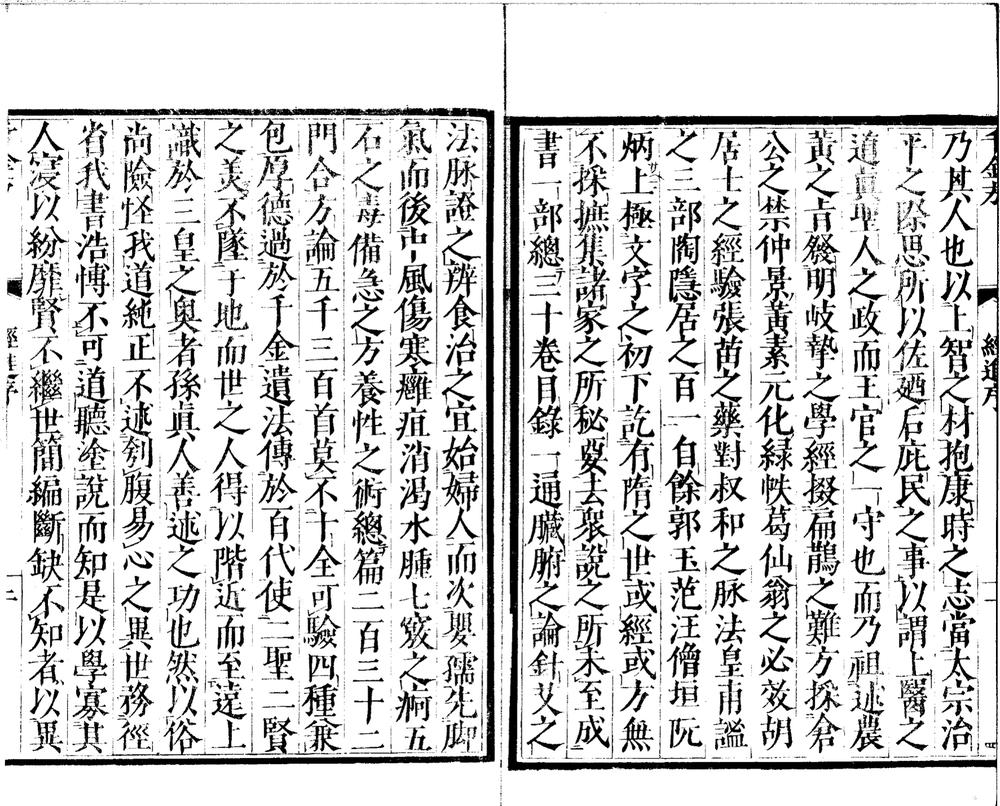 乃其人也以上智之材抱康時之志當太宗治
平之際思所以佐廼后庇民之事以謂上醫之
道真聖人之政而王官之一守也而乃祖述農
黃之旨發明岐摯之學經掇扁鵲之難方採倉
公之禁仲景黃素元化緑帙葛仙翁之必效胡
居士之經驗張苗之藥對叔和之脉法皇甫謐
之三部陶隱居之百一自餘郭玉范汪僧垣阮
炳上極文字之初下訖有隋之世或經或方無
不採摭集諸家之所秘要去衆說之所未至成
書一部總三十卷目錄一通臟腑之論針艾之
法脉證之辨食治之宜始婦人而次嬰孺先脚
氣而後中風傷寒癰疽消渴水腫七竅之痾五
石之毒備急之方養性之術總篇二百三十二
門合方論五千三百首莫不十全可驗四種兼
包厚德過於千金遺法傳於百代使二聖二賢
之美不墜于地而世之人得以階近而至遠上
識於三皇之奧者孫真人善述之功也然以俗
尚險怪我道純正不述刳腹易心之異世務徑
省我書浩博不可道聽塗說而知是以學寡其
人寖以紛靡賢不繼世簡編斷缺不知者以異